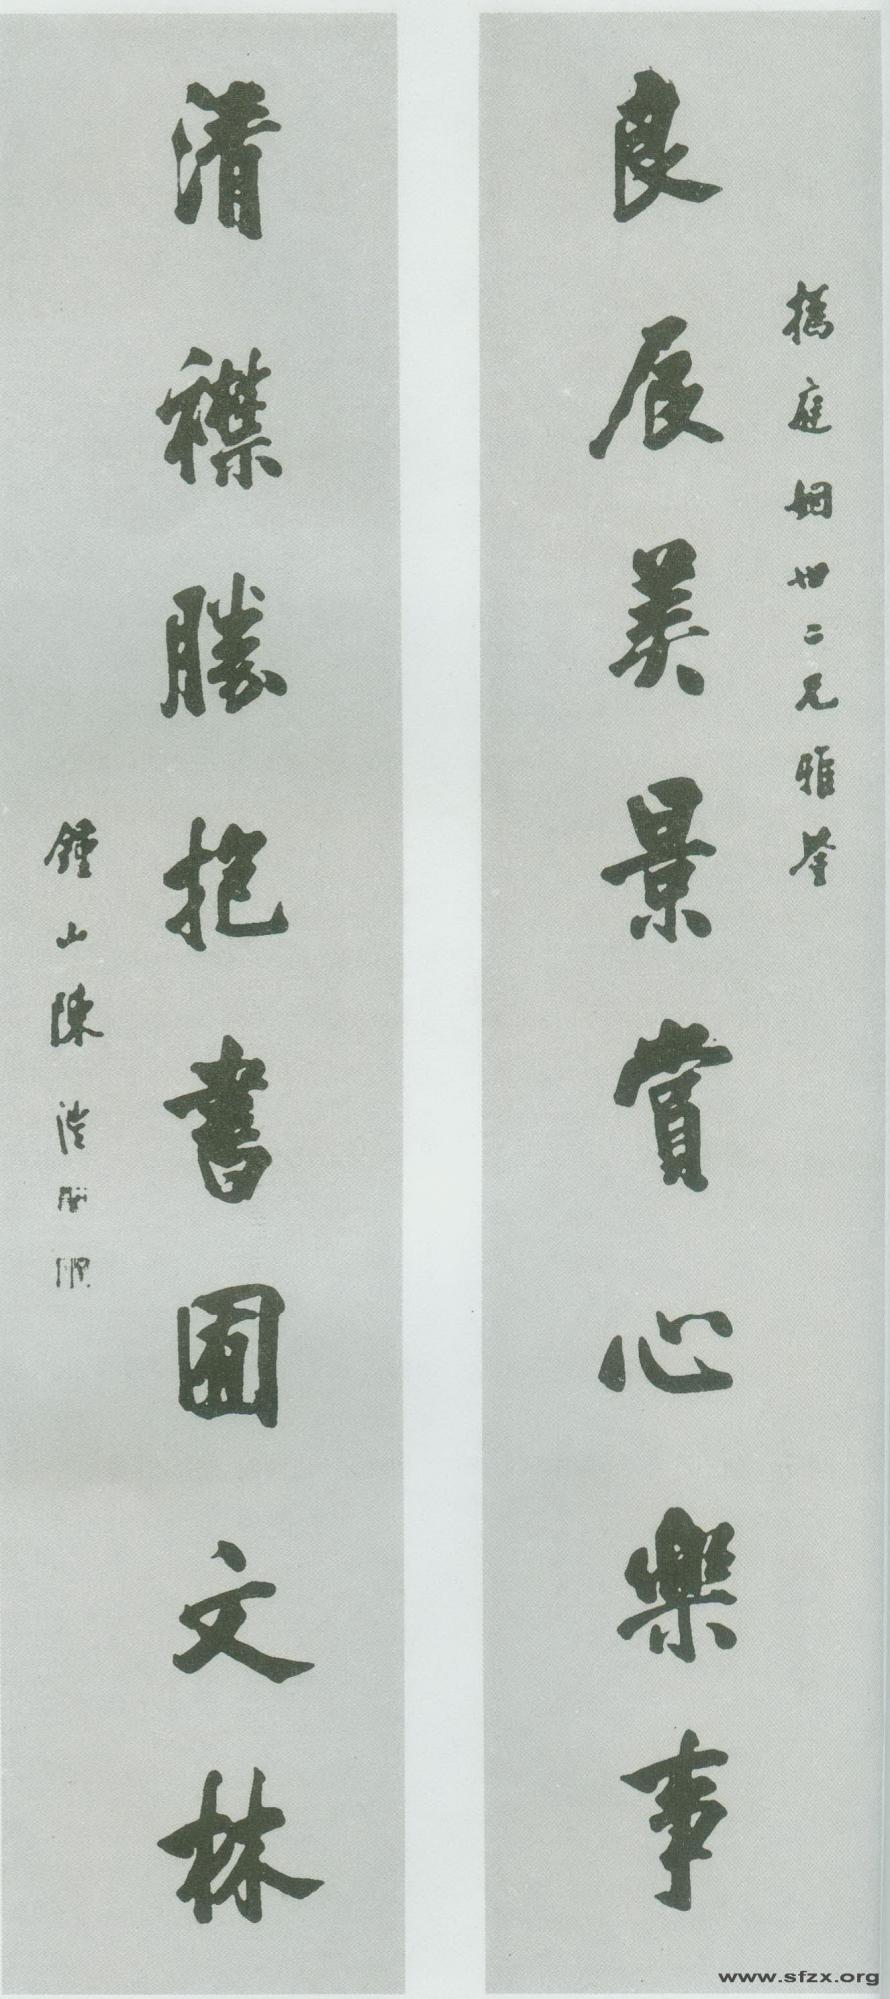 庭姻世二兄雅鉴
良辰美景賞心樂事
清襟勝抱書圃文林
鍾山陳
www.sfzx.org